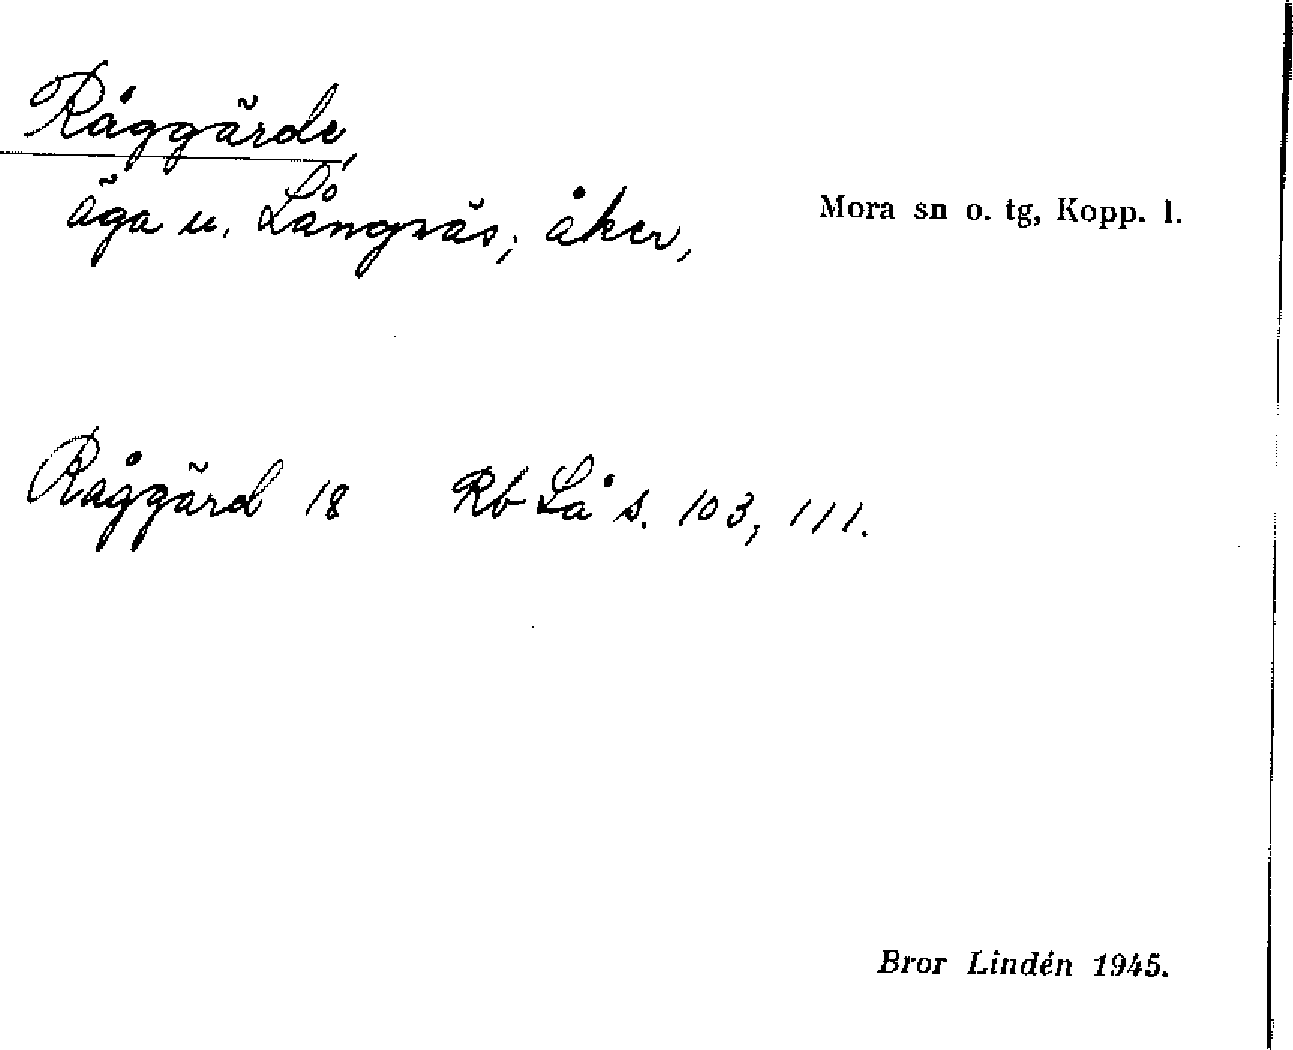 Råggärde,
äga u. Långnäs; åker,
Mora sn o. tg, Kopp. l.
Råggärd 18 Rb Lå s. 103, 111.
Bror Lindén 1945.